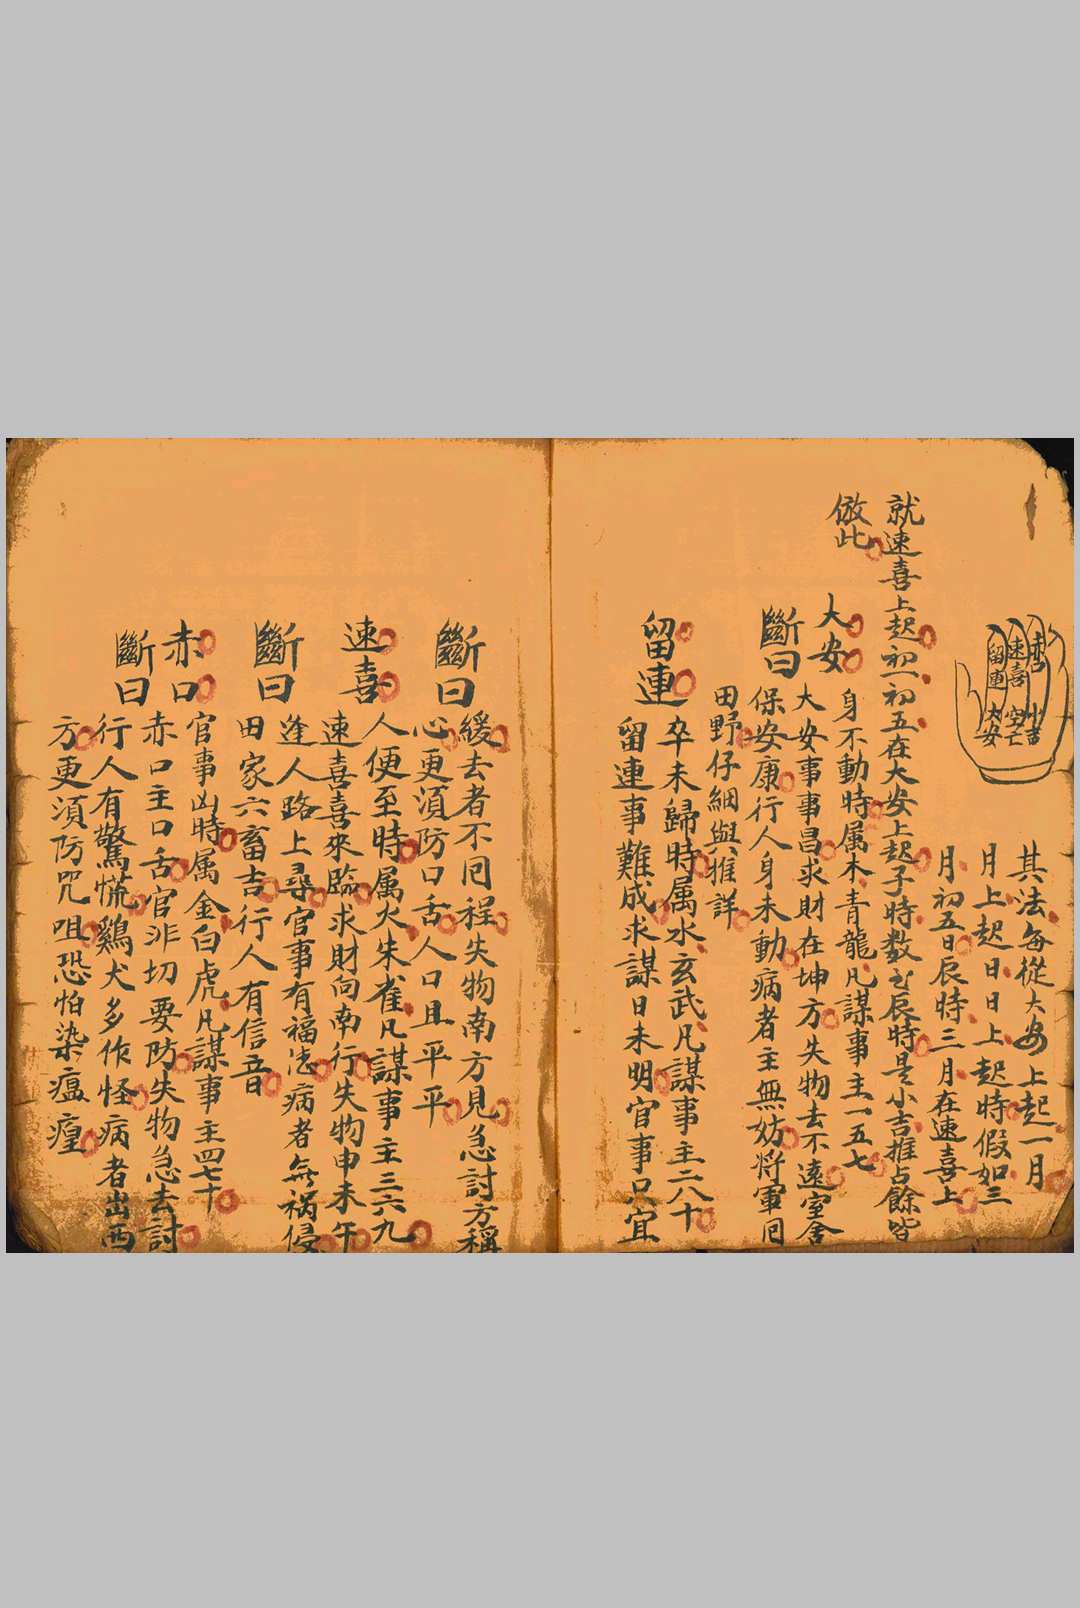 留連
速喜
大安
空亡
小吉
其法每從大安上起一月
月上起日日上起時假如三
月初五日辰時三月在速喜上
就速喜上起初一初五在大安上起子時数至辰時是小吉推占餘皆
倣此
大安
身不動時属木青龍凡謀事主一五七
斷曰
大安事事昌求財在坤方失物去不遠室舍
保安康行人身未動病者主無妨将軍囘
田野仔細與推詳
留連
卒未歸時属水玄武凡謀事主二八十
留連事難成求謀日未明官事只宜
斷曰
緩去者不囘程失物南方見急討方稱
心更須防口舌人口且平平
速喜
人便至時属火朱雀凡謀事主三六九
速喜喜來臨求財向南行失物申未午
斷曰
逢人路上尋官事有福德病者無禍侵
田家六畜吉行人有信音
赤口
官事凶時属金白虎凡謀事主四七十
斷曰
赤口主口舌官非切要防失物急去討
行人有驚慌鷄犬多作怪病者出西
方更須防咒咀恐怕染瘟瘽